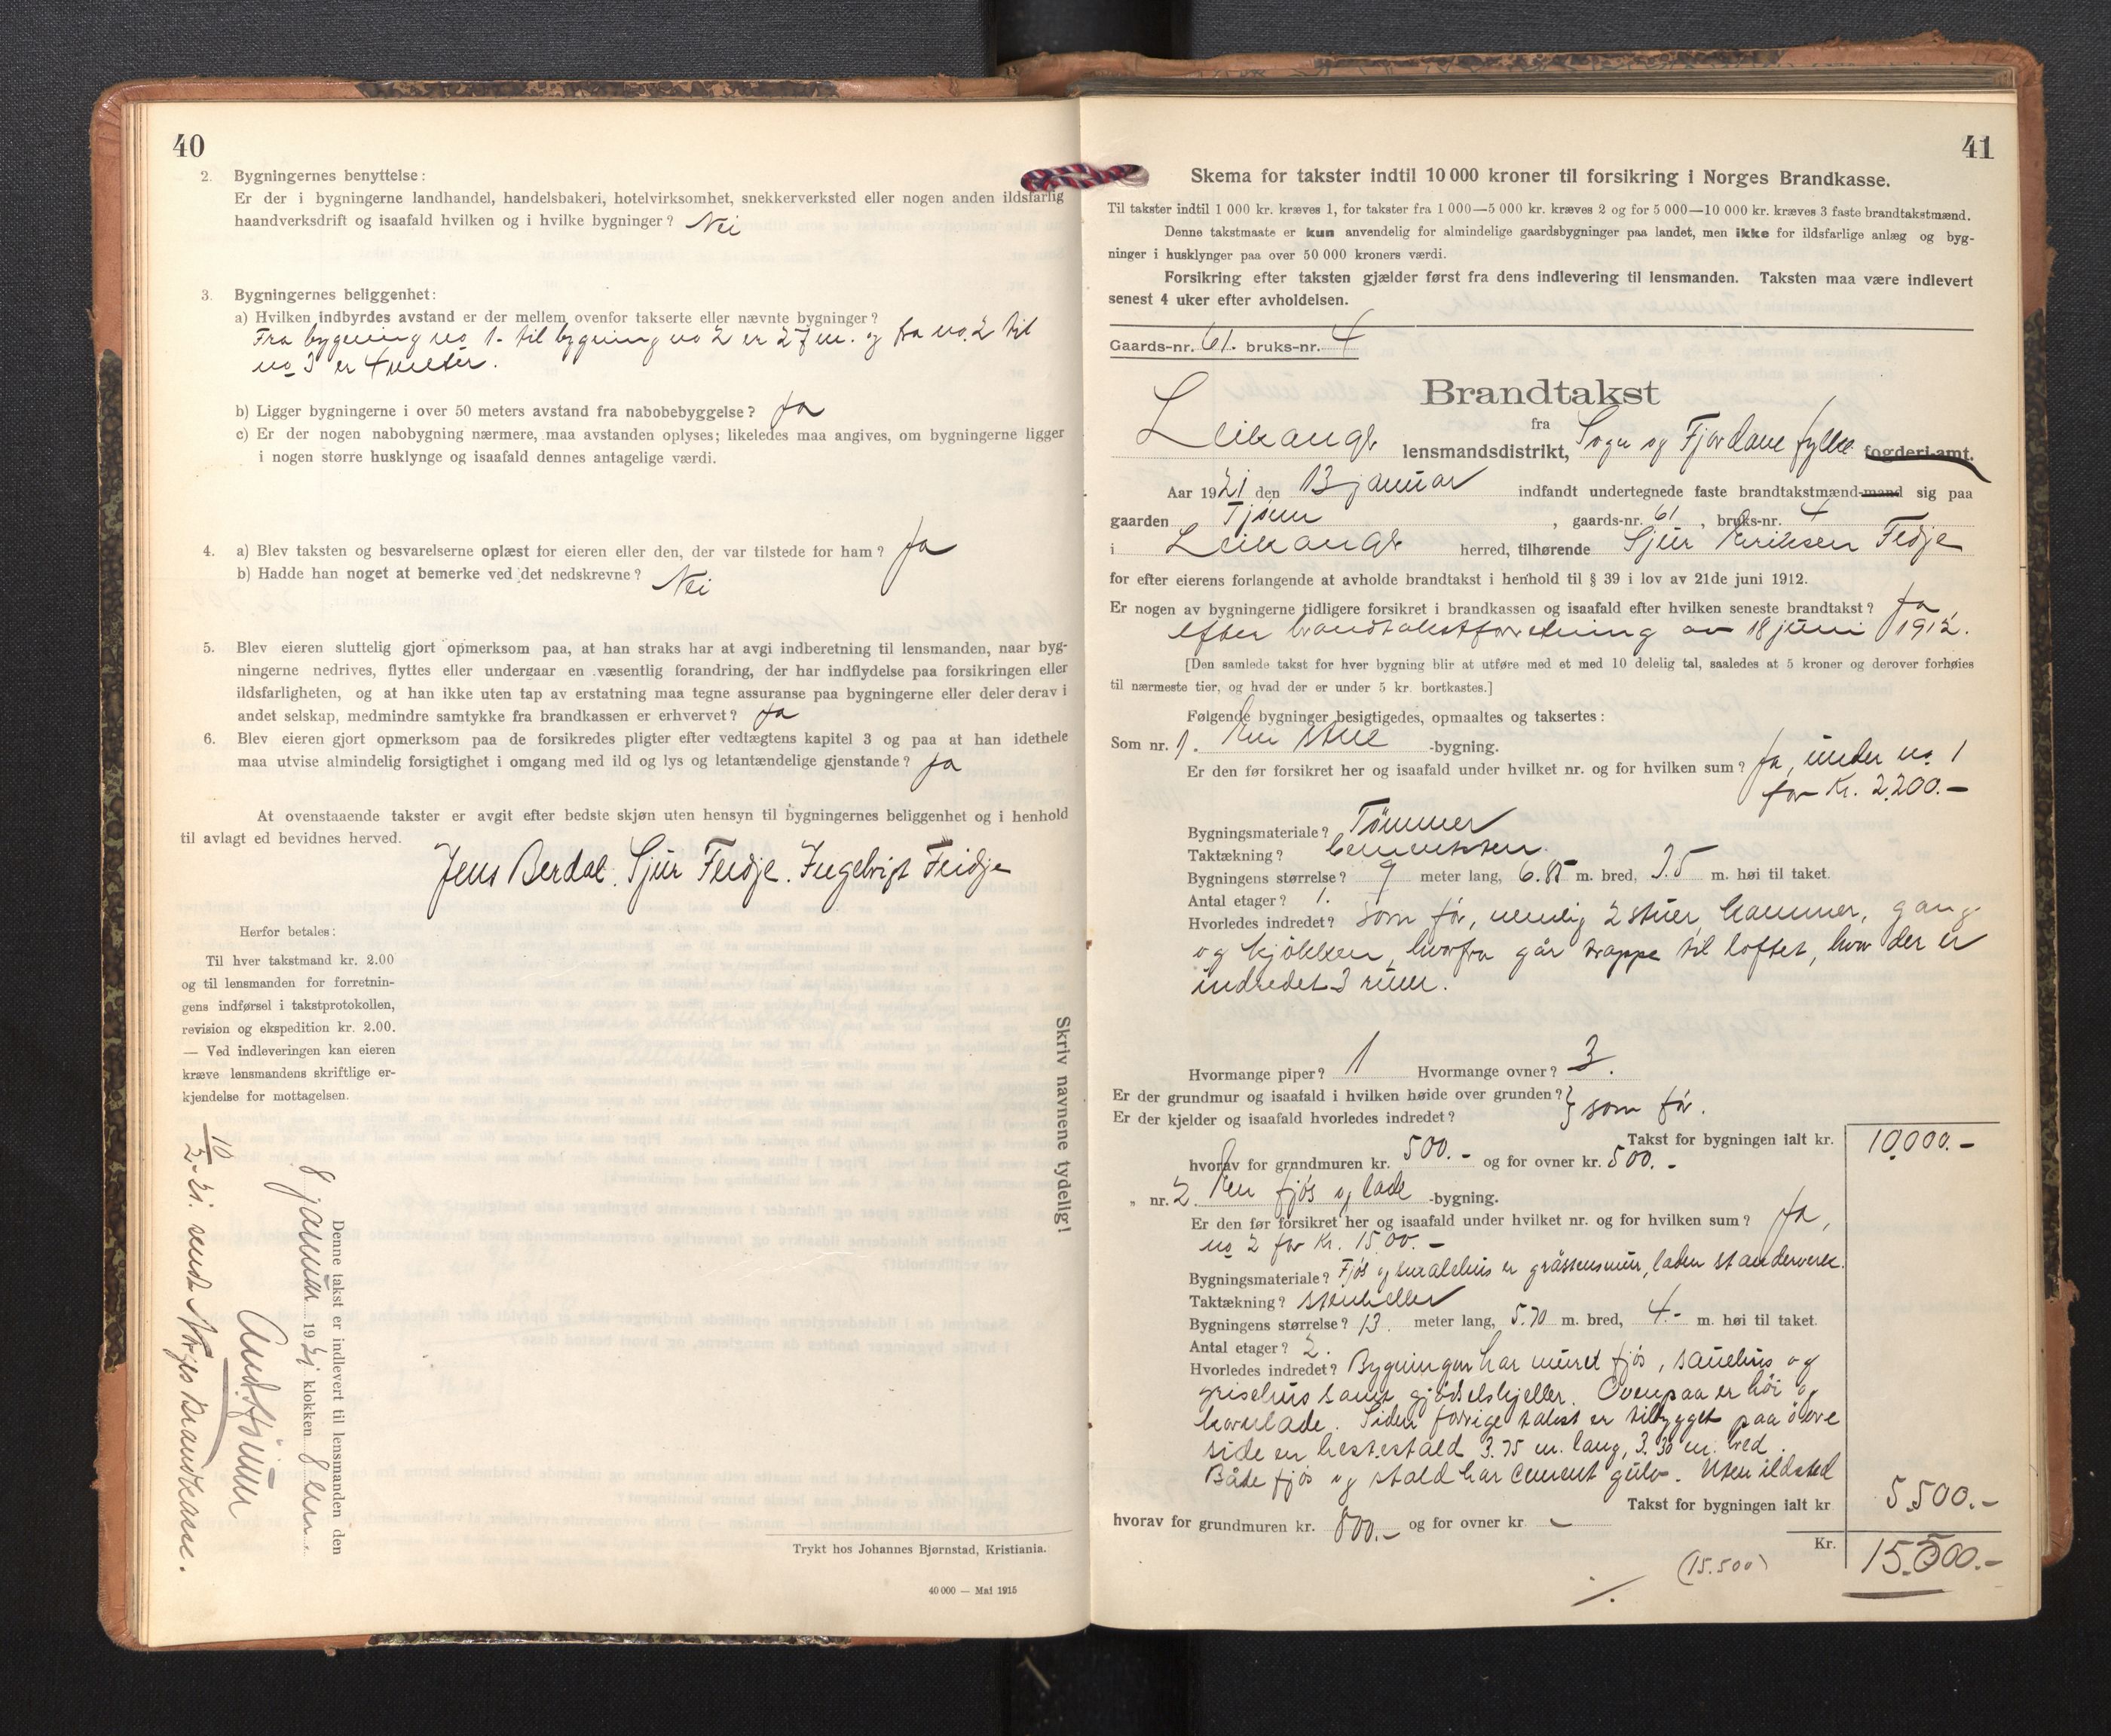 40
2. Bygningernes benyttelse:
Er der i bygningerne landhandel, handelsbakeri, hotelvirksomhet, snekkerverksted eller nogen anden ildsfarlig
haandverksdrift og isaafald hvilken og i hvilke bygninger? Nei
3. Bygningernes beliggenhet:
a) Hvilken indbyrdes avstand er der mellem ovenfor takserte eller nævnte bygninger?
Fra bygning no 1. til bygning no 2 er 27 m. og fra no. 2 til
no 3 er 4 meter.
b) Ligger bygningerne i over 50 meters avstand fra nabobebyggelse? Ja
c) Er der nogen nabobygning nærmere, maa avstanden oplyses; likeledes maa angives, om bygningerne ligger
i nogen større husklynge og isaafald dennes antagelige værdi.
4. a) Blev taksten og besvarelserne oplæst for eieren eller den, der var tilstede for ham? Ja
b) Hadde han noget at bemerke ved det nedskrevne? Nei
5. Blev eieren sluttelig gjort opmerksom paa, at han straks har at avgi indberetning til lensmanden, naar byg-
ningerne nedrives, flyttes eller undergaar en væsentlig forandring, der har indflydelse paa forsikringen eller
ildsfarligheten, og at han ikke uten tap av erstatning maa tegne assuranse paa bygningerne eller deler derav i
andet selskap, medmindre samtykke fra brandkassen er erhvervet? Ja
6. Blev eieren gjort opmerksom paa de forsikredes pligter efter vedtægtens kapitel 3 og paa at han idethele
maa utvise almindelig forsigtighet i omgang med ild og lys og letantændelige gjenstande? Ja
At ovenstaaende takster er avgit efter bedste skjøn uten hensyn til bygningernes beliggenhet og i henhold
til avlagt ed bevidnes herved.
Jens Berdal. Sjur Feidje. Ingebrigt Feidje
Herfor betales:
Til hver takstmand kr. 2.00
og til lensmanden for forretnin-
gens indførsel i takstprotokollen,
revision og ekspedition kr. 2.00.
— Ved indleveringen kan eieren
kræve lensmandens skriftlige er-
kjendelse for mottagelsen.
Skriv navnene tydelig!
Denne takst er indlevert til lensmanden den
8 januar 1921 klokken 8 em.
10/2-21. sendt Norges Brandkasse.
Trykt hos Johannes Bjørnstad, Kristiania.
40 000 — Mai 1915
41
Skema for takster indtil 10 000 kroner til forsikring i Norges Brandkasse.
Til takster indtil 1 000 kr. kræves 1, for takster fra 1 000—5 000 kr. kræves 2 og for 5 000—10 000 kr. kræves 3 faste brandtakstmænd.
Denne takstmaate er kun anvendelig for almindelige gaardsbygninger paa landet, men ikke for ildsfarlige anlæg og byg-
ninger i husklynger paa over 50 000 kroners værdi.
Forsikring efter taksten gjælder først fra dens indlevering til lensmanden. Taksten maa være indlevert
senest 4 uker efter avholdelsen.
Gaards-nr. 61. bruks-nr. 4
Brandtakst
fra
Leikanger lensmandsdistrikt, Sogn og Fjordane fylke fogderi amt.
Aar 1921 den 13 januar indfandt undertegnede faste brandtakstmænd-mand sig paa
gaarden Tjørn, gaards-nr. 61, bruks-nr. 4
i Leikanger herred, tilhørende Sjur Eriksen Feidje
for efter eierens forlangende at avholde brandtakst i henhold til § 39 i lov av 21de juni 1912.
Er nogen av bygningerne tidligere forsikret i brandkassen og isaafald efter hvilken seneste brandtakst? Ja
efter brandtakstforretning av 18 juni 1912.
[Den samlede takst for hver bygning blir at utføre med et med 10 delelig tal, saaledes at 5 kroner og derover forhøies
til nærmeste tier, og hvad der er under 5 kr. bortkastes.]
Følgende bygninger besigtigedes, opmaaltes og taksertes:
Som nr. 1. En stue -bygning.
Er den før forsikret her og isaafald under hvilket nr. og for hvilken sum? Ja, under no. 1
for kr. 2.200.-
Bygningsmateriale? Tømmer
Taktækning? Cementsten.
Bygningens størrelse? 9 meter lang, 6.85 m. bred, 3.5 m. høi til taket.
Antal etager? 1.
Hvorledes indredet? Som før, nemlig 2 stuer, kammer, gang
og kjøkken, hvorfra går trappe til loftet, hvor der er
indredet 3 rum.
Hvormange piper? 1 Hvormange ovner? 3.
Er der grundmur og isaafald i hvilken høide over grunden?
Er der kjelder og isaafald hvorledes indredet? } som før.
Takst for bygningen ialt kr. 10.000.-
hvorav for grundmuren kr. 500.- og for ovner kr. 500.-
„ nr. 2. En fjøs og lade -bygning.
Er den før forsikret her og isaafald under hvilket nr. og for hvilken sum? Ja,
no 2 for kr. 1500.-
Bygningsmateriale? Fjøs og smalehus er gråstensmur, laden standerverk.
Taktækning? Stenheller
Bygningens størrelse? 13. meter lang, 5.70 m. bred, 4.- m. høi til taket.
Antal etager? 2.
Hvorledes indredet? Bygningen har muret fjøs, sauehus og
grisehus samt gjødselskjeller. Ovenpaa er høi og
kornlade. Siden forrige takst er tilbygget paa øvre
side en hestestald 3.75 m. lang, 3.30 m. bred.
Både fjøs og stald har cement gulv. Uten ildsted
Takst for bygningen ialt kr 5.500.-
hvorav for grundmuren kr. 800.- og for ovner kr -
Kr. 15.500.-
(15.500)